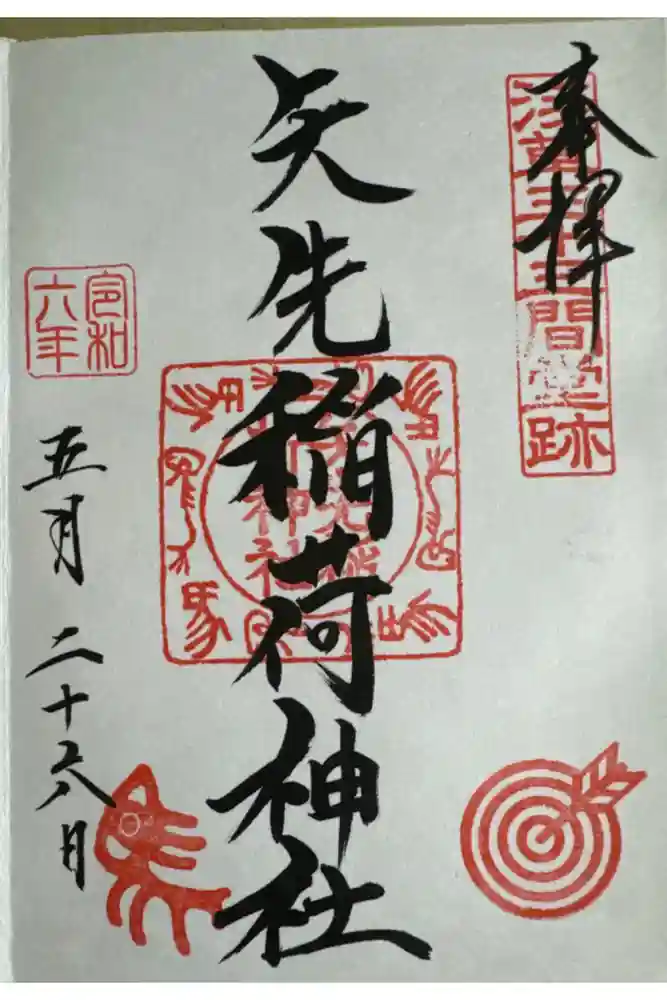 奉拝
浅草三十三間堂跡
矢先稲荷神社
令和
六年
五月二十六日
馬